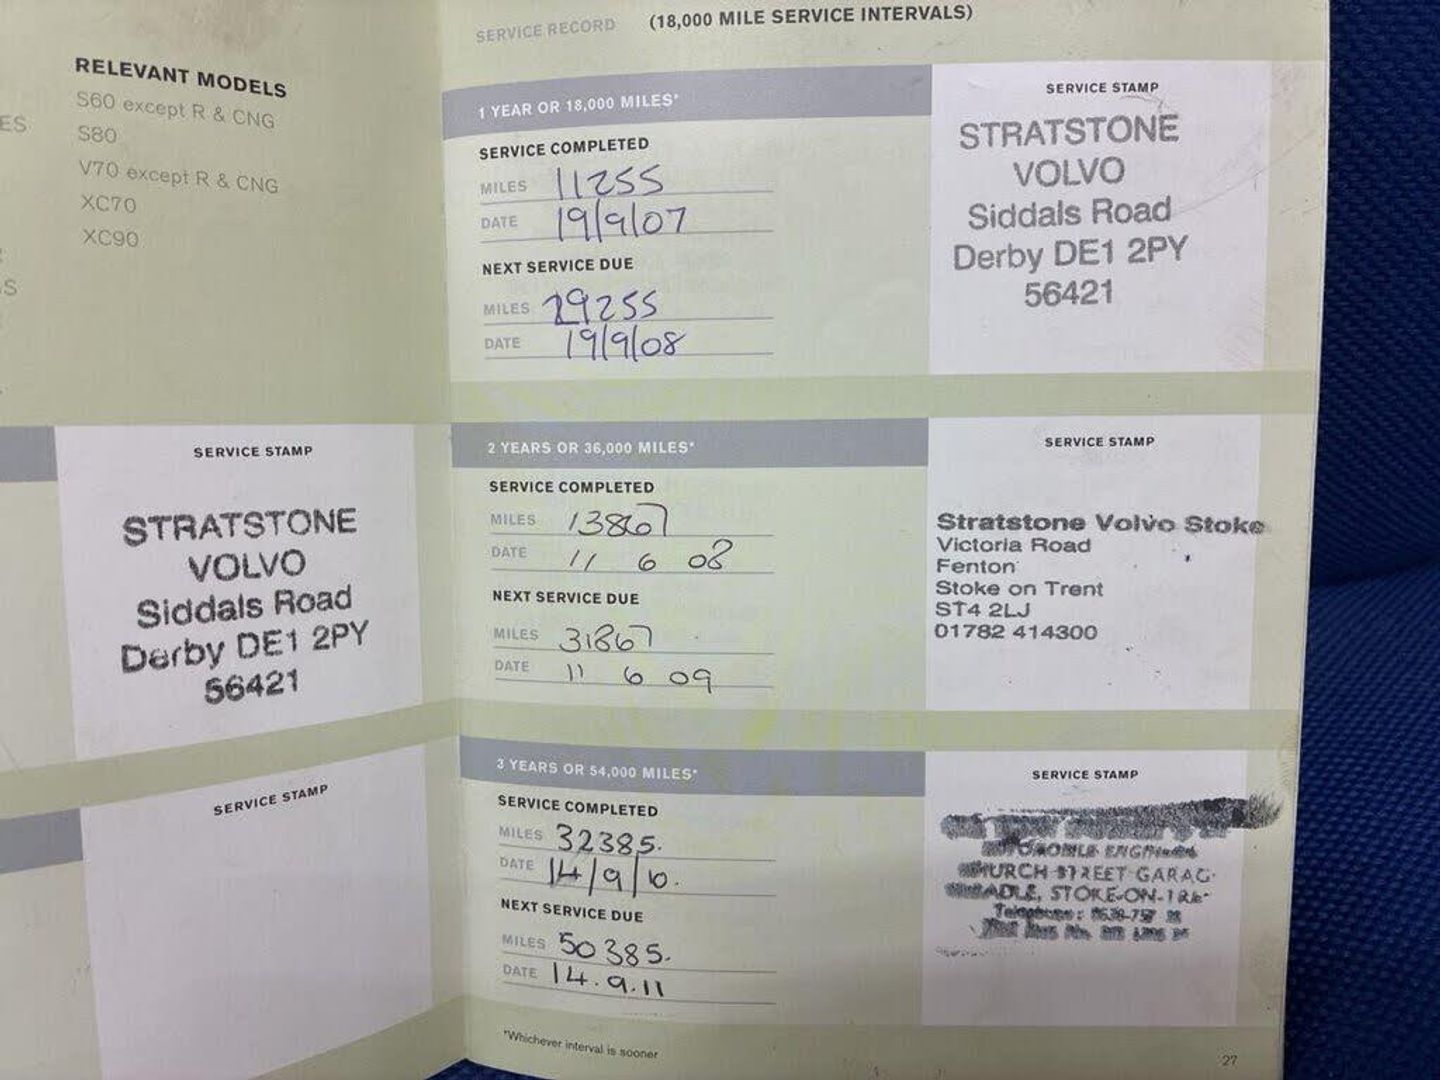 RELEVANT MODELS
S60 except R & CNG
S80
V70 except R & CNG
XC70
XC90
ES
S
SERVICE STAMP
STRATSTONE
VOLVO
Siddals Road
Derby DE1 2PY
56421
SERVICE STAMP
SERVICE RECORD (18,000 MILE SERVICE INTERVALS)
1 YEAR OR 18,000 MILES*
SERVICE COMPLETED
MILES 11255
DATE 19/9/07
NEXT SERVICE DUE
MILES 29255
DATE 19/9/08
SERVICE STAMP
STRATSTONE
VOLVO
Siddals Road
Derby DE1 2PY
56421
2 YEARS OR 36,000 MILES*
SERVICE COMPLETED
MILES 13867
DATE 11 6 08
NEXT SERVICE DUE
MILES 31867
DATE 11 6 09
SERVICE STAMP
Stratstone Volvo Stoke
Victoria Road
Fenton
Stoke on Trent
ST4 2LJ
01782 414300
3 YEARS OR 54,000 MILES*
SERVICE COMPLETED
MILES 32385.
DATE 14/9/10.
NEXT SERVICE DUE
MILES 50385.
DATE 14.9.11
SERVICE STAMP
STREET GARAG
STOKE-ON-
Telephone:
*Whichever interval is sooner
27